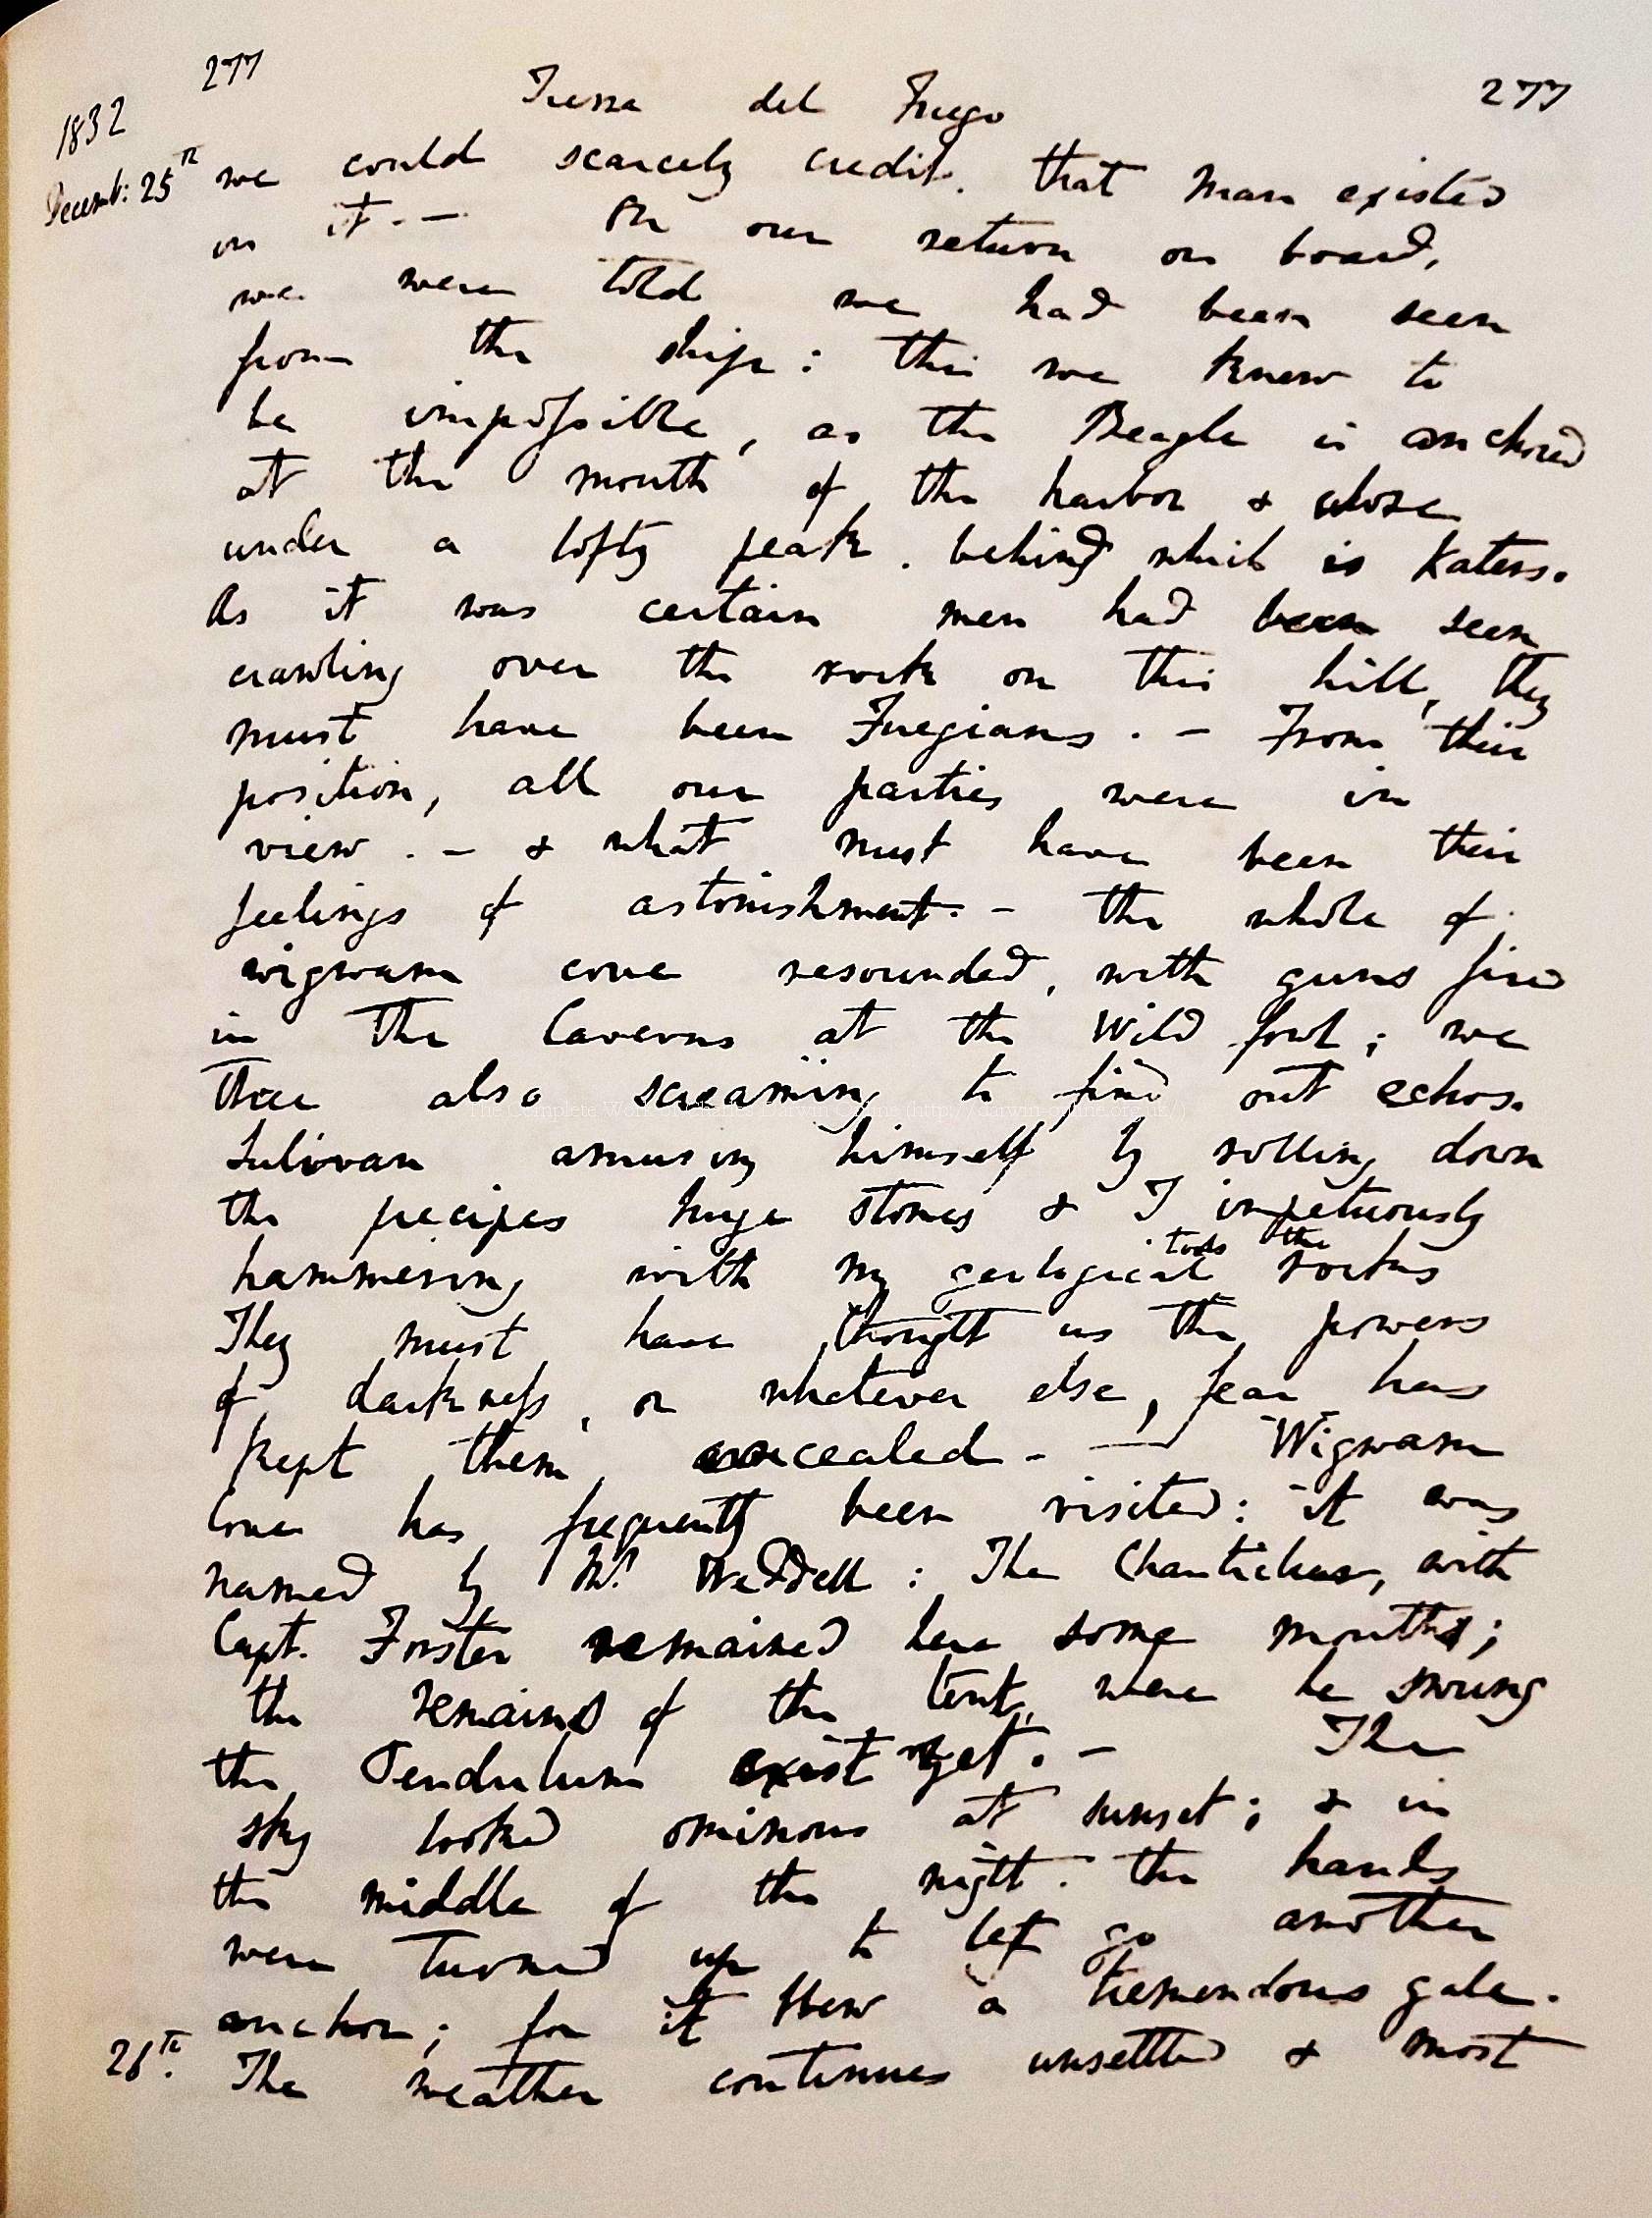 277 Tierra del Fuego 277
1832
Decemb: 25th we could scarcely credit. that man existed
on it. — On our return on board,
we were told we had been seen
from the ship: this we knew to
be impossible, as the Beagle is anchored
at the mouth of the harbor & close
under a lofty peak. behind which is Katers.
As it was certain men had been seen
crawling over the rocks on this hill, they
must have been Fuegians. — From their
position, all our parties were in
view. — & what must have been their
feelings of astonishment. — the whole of
wigwam cove resounded, with guns fired
in the Caverns at the Wild fowl; we
three also screaming to find out echos.
Sulivan amusing himself by rolling down
the precipes huge stones & I impetuously
hammering with my geological tools the rocks
They must have thought us the powers
of darkness, or whatever else, fear has
kept them concealed. — Wigwam
Cove has frequently been visited: it was
named by Mr. Weddell: The Chanticleer, with
Capt. Forster remained here some months;
the remains of the tent, where he swung
the Pendulum exist yet. — The
sky looked ominous at sunset; & in
the middle of the night. the hands
were turned up to let go another
anchor; for it blew a tremendous gale.
26th. The weather continues unsettled & most